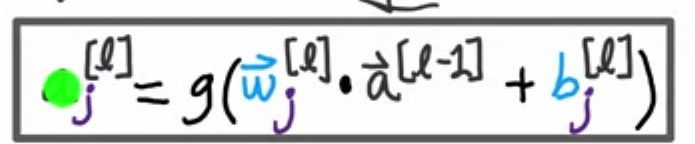 j^[l] = g(w⃗_j^[l] · a⃗^[l-1] + b_j^[l])